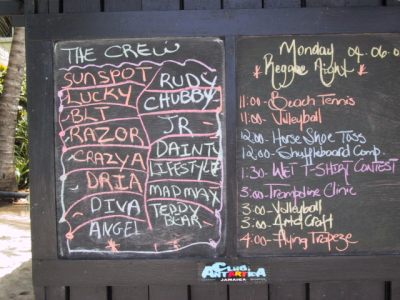 THE CREW
SUNSPOT
LUCKY
BLT
RAZOR
CRAZYA
DRIA
DIVA
ANGEL
RUDY
CHUBBY
JR
DAINTY
LIFESTYLE
MADMAX
TEDDY
BEAR
Monday 04-06-0
Reggae Night
11:00 - Beach Tennis
11:00 - Volleyball
12:00 - Horse Shoe Toss
12:00 - Shuffleboard Comp.
1:30 - WET T-SHIRT CONTEST
3:00 - Trampoline Clinic
3:00 - Volleyball
3:00 - Art & Craft
4:00 - Flying Trapeze
CLUB
ANTARTICA
JAMAICA